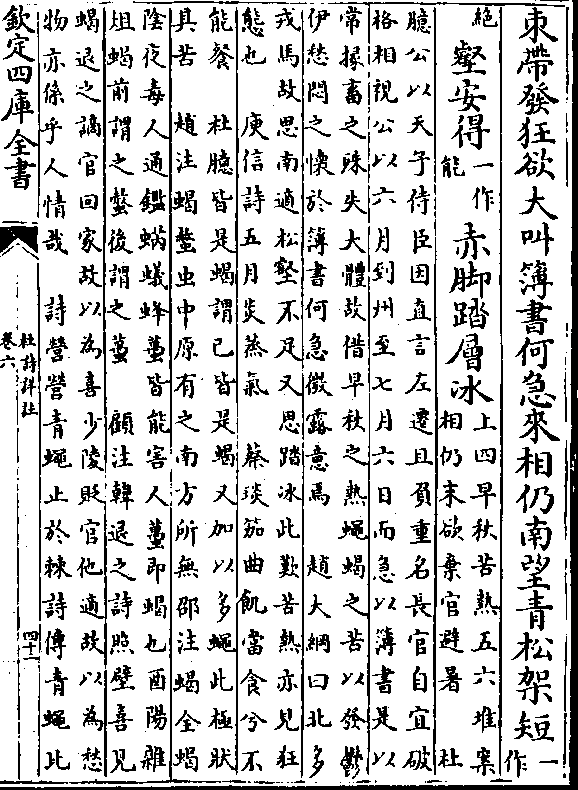 束帶發狂欲大叫簿書何急來相仍南望青松架短一作
絶壑安得一作能赤脚踏層冰上四早秋苦熱五六堆案
相仍末欲棄官避暑　杜
臆公以天子侍臣因直言左遷且負重名長官自宜破
格相視公以六月到州至七月六日而急以簿書是以
常掾畜之殊失大體故借早秋之熱蠅蝎之苦以發鬱
伊愁悶之懷於簿書何急微露意焉　趙大綱曰北多
戎馬故思南適松壑不足又思踏冰此歎苦熱亦見狂
態也　庾信詩五月炎蒸氣　蔡琰笳曲飢當食兮不
能餐　杜臆皆是蝎謂已皆是蝎又加以多蠅此極狀
其苦　趙注蝎螫虫中原有之南方所無邵注蝎全蝎
陰夜毒人通鑑蝸蟻蜂蠆皆能害人蠆即蝎也酉陽雜
俎蝎前謂之螫後謂之蠆　顧注韓退之詩照壁喜見
蝎退之謫官回家故以為喜少陵貶官他適故以為愁
物亦係乎人情哉　詩營營青蠅止於棘詩傳青蠅比
欽定四庫全書
杜詩詳註
卷六
四十一